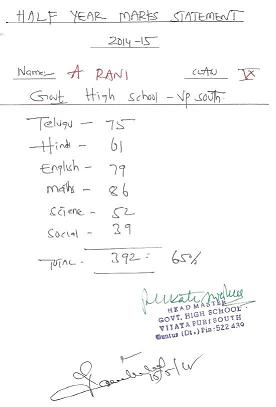 HALF YEAR MARKS STATEMENT
2014-15
Name:- A RANI CLASS IX
Govt High school - VP south
Telugu - 75
Hindi - 61
English - 79
maths - 86
Sciene - 52
Social - 39
TOTAL - 392 = 65%
HEAD MASTER
GOVT. HIGH SCHOOL
VIJAYAPURI SOUTH
Guntur (Dt.) Pin: 522 439